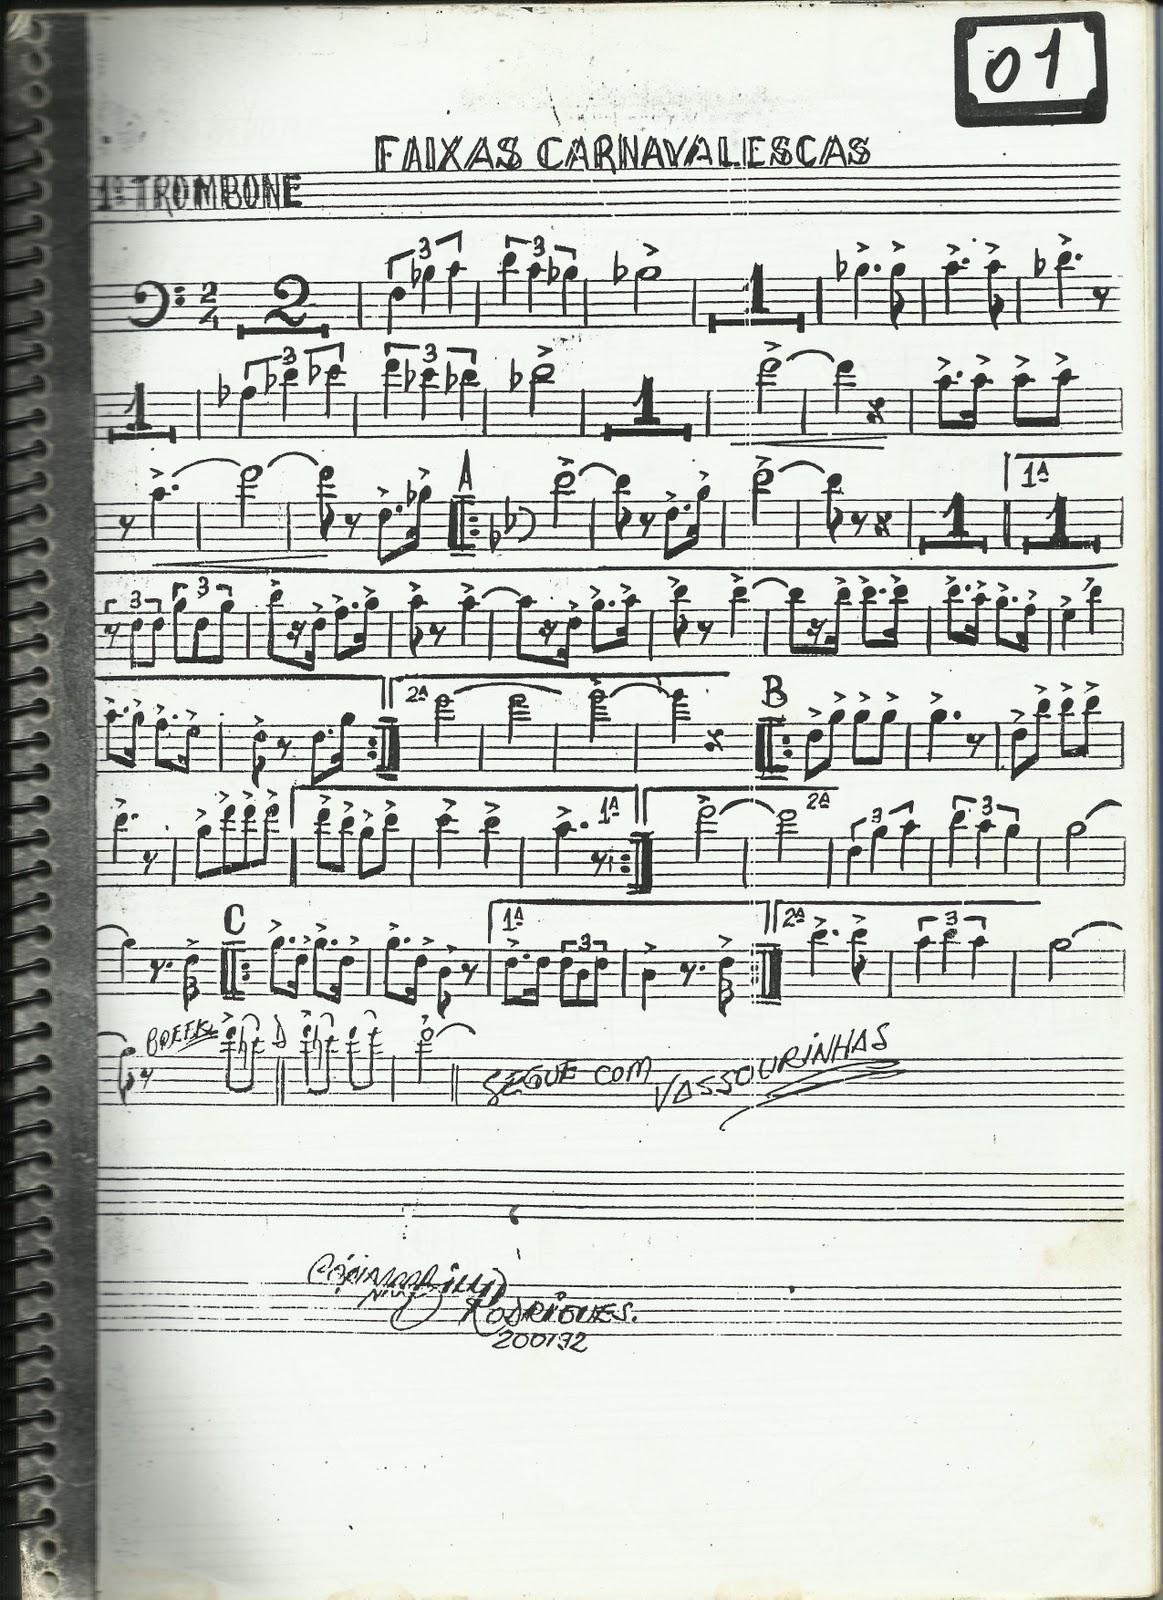 01
FAIXAS CARNAVALESCAS
1º TROMBONE
2
4
2
3
3
1
1
3
3
1
A
1ª
1
1
3
3
2ª
B
1ª
2ª
3
3
C
1ª
3
2ª
3
BREEK
D
SEGUE COM VASSOURINHAS
RODRIGUES.
200192